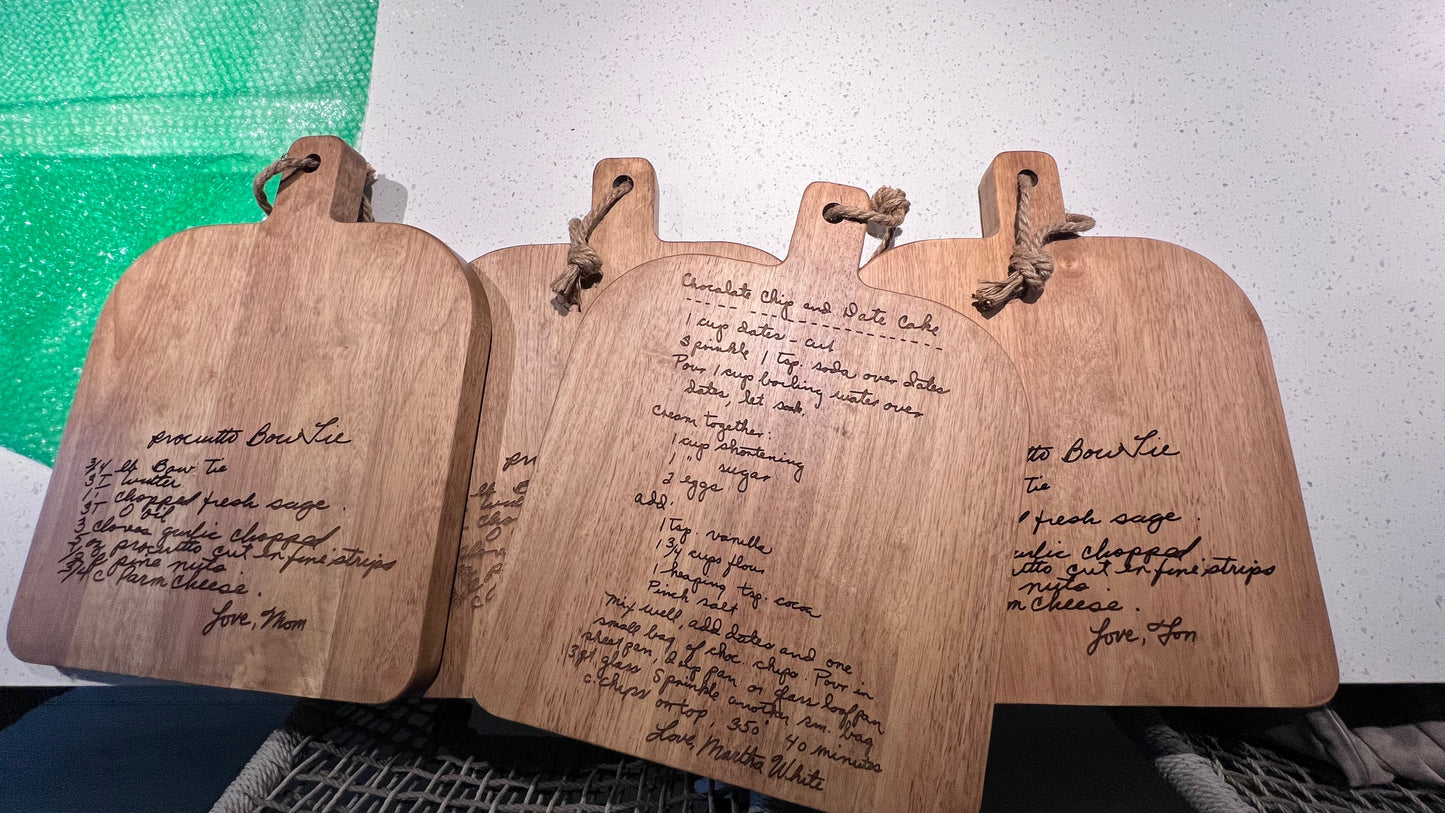 procuitto Bow Tie
3/4 lb Bow Tie
3T butter
1T chopped fresh sage.
3T O oil
3 cloves garlic chopped
5 oz procuitto cut in fine strips
pine nuts
3/4 c Parm Cheese.
Love, Mom
Chocalate Chip and Date Cake
1 cup dates - cut
Sprinkle 1 tsp. soda over dates
Pour 1 cup boiling water over
dates, let soak.
Cream together:
1 cup shortening
1 " sugar
2 eggs
add:
1 tsp. vanilla
1 3/4 cups flour
1 heaping tsp. cocoa
Pinch salt
Mix well, add dates and one
small bag of choc. chips. Pour in
sheet pan, deep pan or glass loaf pan
3 qt glass Sprinkle another sm. bag
c. chips on top, 350° 40 minutes
Love, Martha White
Bow Tie
fresh sage.
chopped
cut in fine strips
nuts
Cheese.
Love, Jon